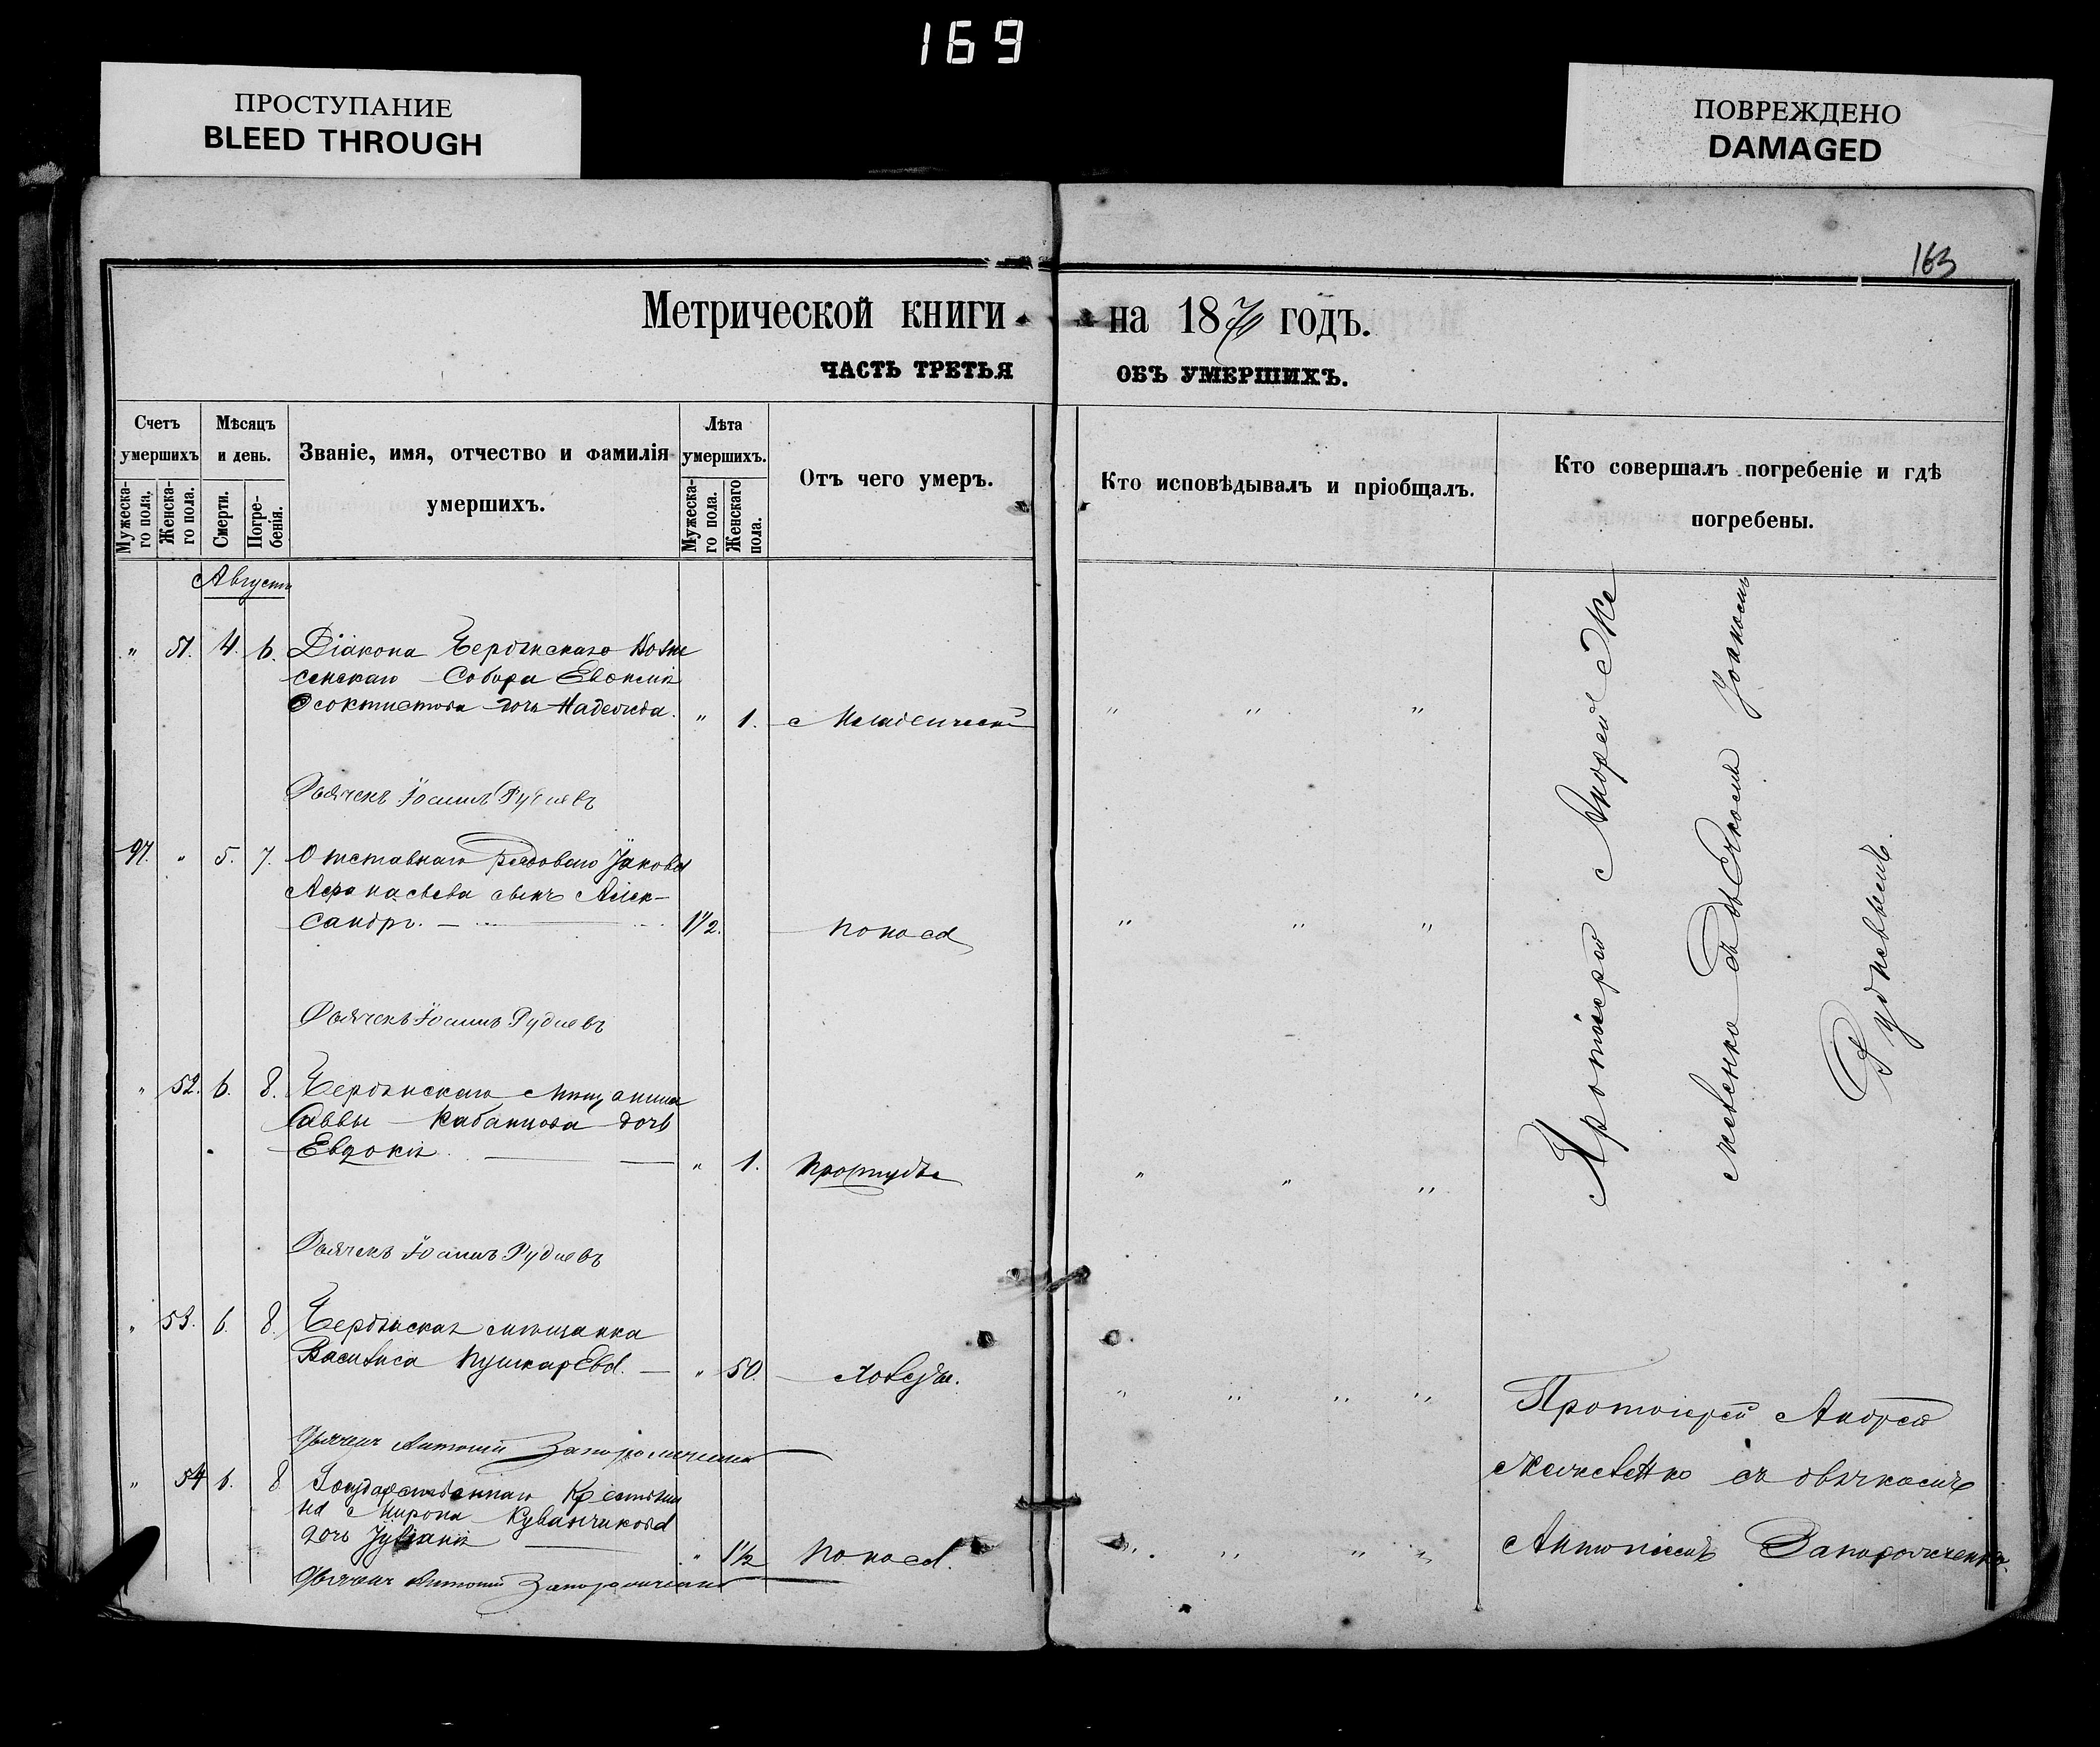 169
ПРОСТУПАНИЕ
BLEED THROUGH
ПОВРЕЖДЕНО
DAMAGED
163
Метрической книги на 1870 годъ.
ЧАСТЬ ТРЕТЬЯ ОБЪ УМЕРШИХЪ.
Счетъ умершихъ
Мужеска-го пола.
Женска-го пола.
Мѣсяцъ и день.
Смерти.
Погре-бенія.
Званіе, имя, отчество и фамилія
умершихъ.
Лѣта умершихъ.
Мужеска-го пола.
Женскаго пола.
Отъ чего умеръ.
Кто исповѣдывалъ и пріобщалъ.
Кто совершалъ погребеніе и гдѣ
погребены.
Августъ
" 51. 4. 6. Діакона Бердянскаго Возне
сенскаго Собора Евѳимія
Ѳеоктистова дочь Надежда. " 1. Младенческ
" " "
Дьячекъ Іоаннъ Рудневъ
97. " 5. 7. Отставнаго рядоваго Іакова
Афанасьева сынъ Алек-
сандръ. 1 1/2. поноса
" " "
Дьячекъ Іоаннъ Рудневъ
" 52. 6. 8. Бердянскаго мѣщанина
Саввы Кабанцова дочь
Евдокія " 1. Простуды
" " "
Дьячекъ Іоаннъ Рудневъ
Протоіерей Андрей Же
межевенко съ дьячкомъ Іоанномъ
Рудневымъ.
" 53. 6. 8. Бердянская мѣщанка
Василиса Пушкарева. " 50.
" " " "
Дьячекъ Антоній Запорожченко
" 54 6. 8 Государственнаго Крестьяни
на Мирона Куванчикова
дочь Іуліанія " 1 1/2 поноса.
" " " "
Дьячекъ Антоній Запорожченко
Протоіерей Андрей
съ дьячкомъ
Антоніемъ Запорожченко